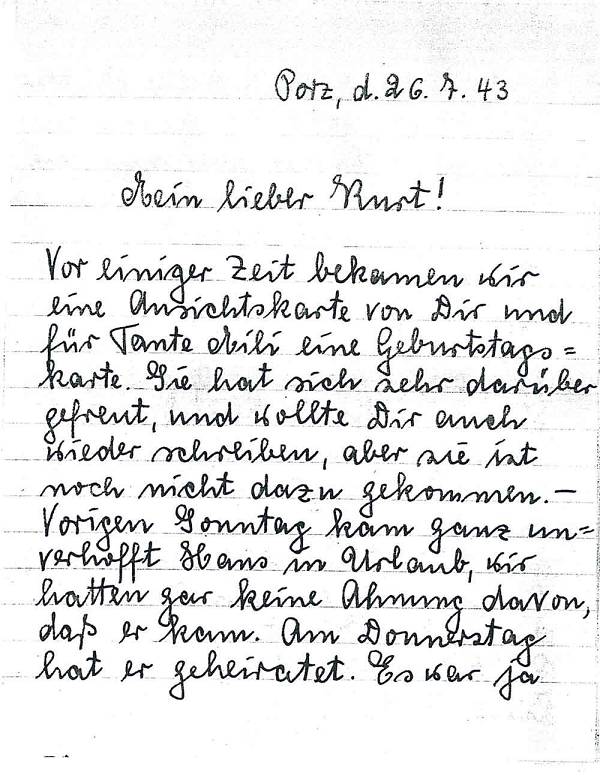 Porz, d. 26. 7. 43
Mein lieber Kurt!
Vor einiger Zeit bekamen wir
eine Ansichtskarte von Dir und
für Tante Mili eine Geburtstags=
karte. Sie hat sich sehr darüber
gefreut, und wollte Dir auch
wieder schreiben, aber sie ist
noch nicht dazu gekommen. –
Vorigen Sonntag kam ganz un=
verhofft Hans in Urlaub, wir
hatten gar keine Ahnung davon,
daß er kam. Am Donnerstag
hat er geheiratet. Es war ja